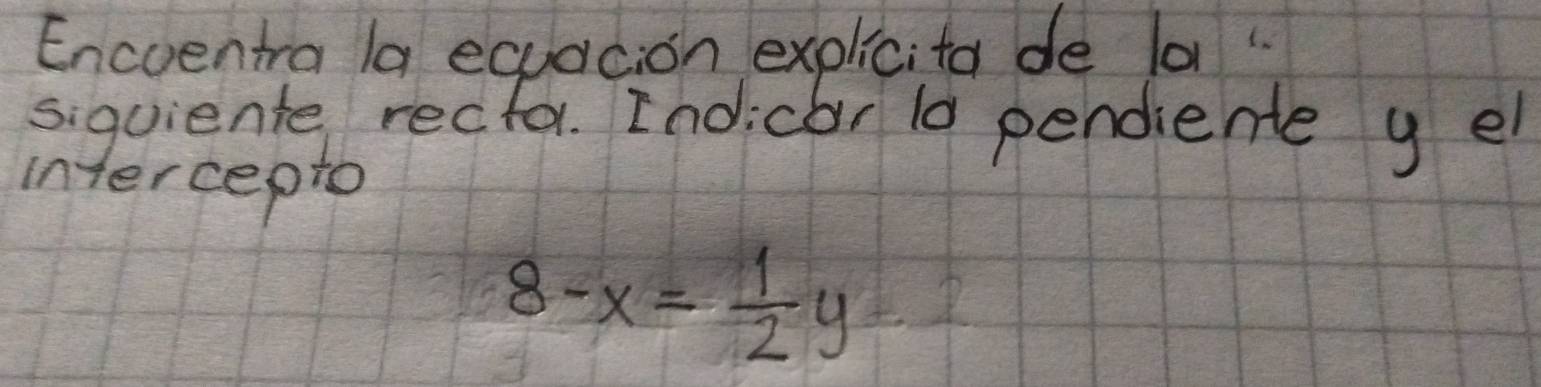 Encuentra la ecuación explícita de la
siguiente recta. Indicar la pendiente y el
intercepto
8-x = \frac{1}{2} y